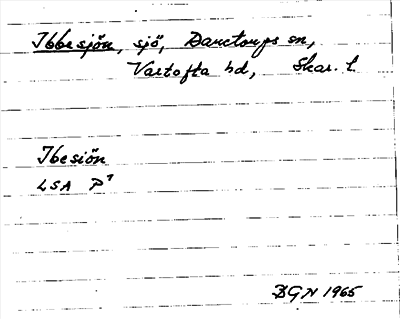 Ibbesjön, sjö, Danstorps sn,
Vartofta hd, Skar. l.
Ibesiön
LSA P7
BGN 1965